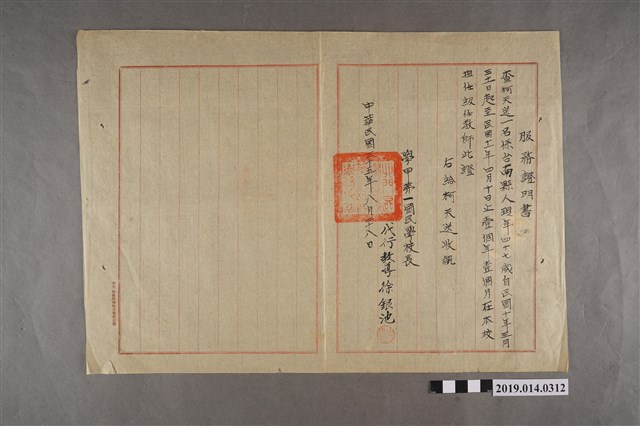 服務證明書
查柯天送一名係台南縣人現年四十七歲自民國十年三月
三十日起至民國十一年四月十日止壹個年壹個月在本校
担任級任教師此證
右給柯天送收執
學甲第一國民學校長
代行教導徐銀池
中華民國三十五年八月廿八日
2019.014.0312